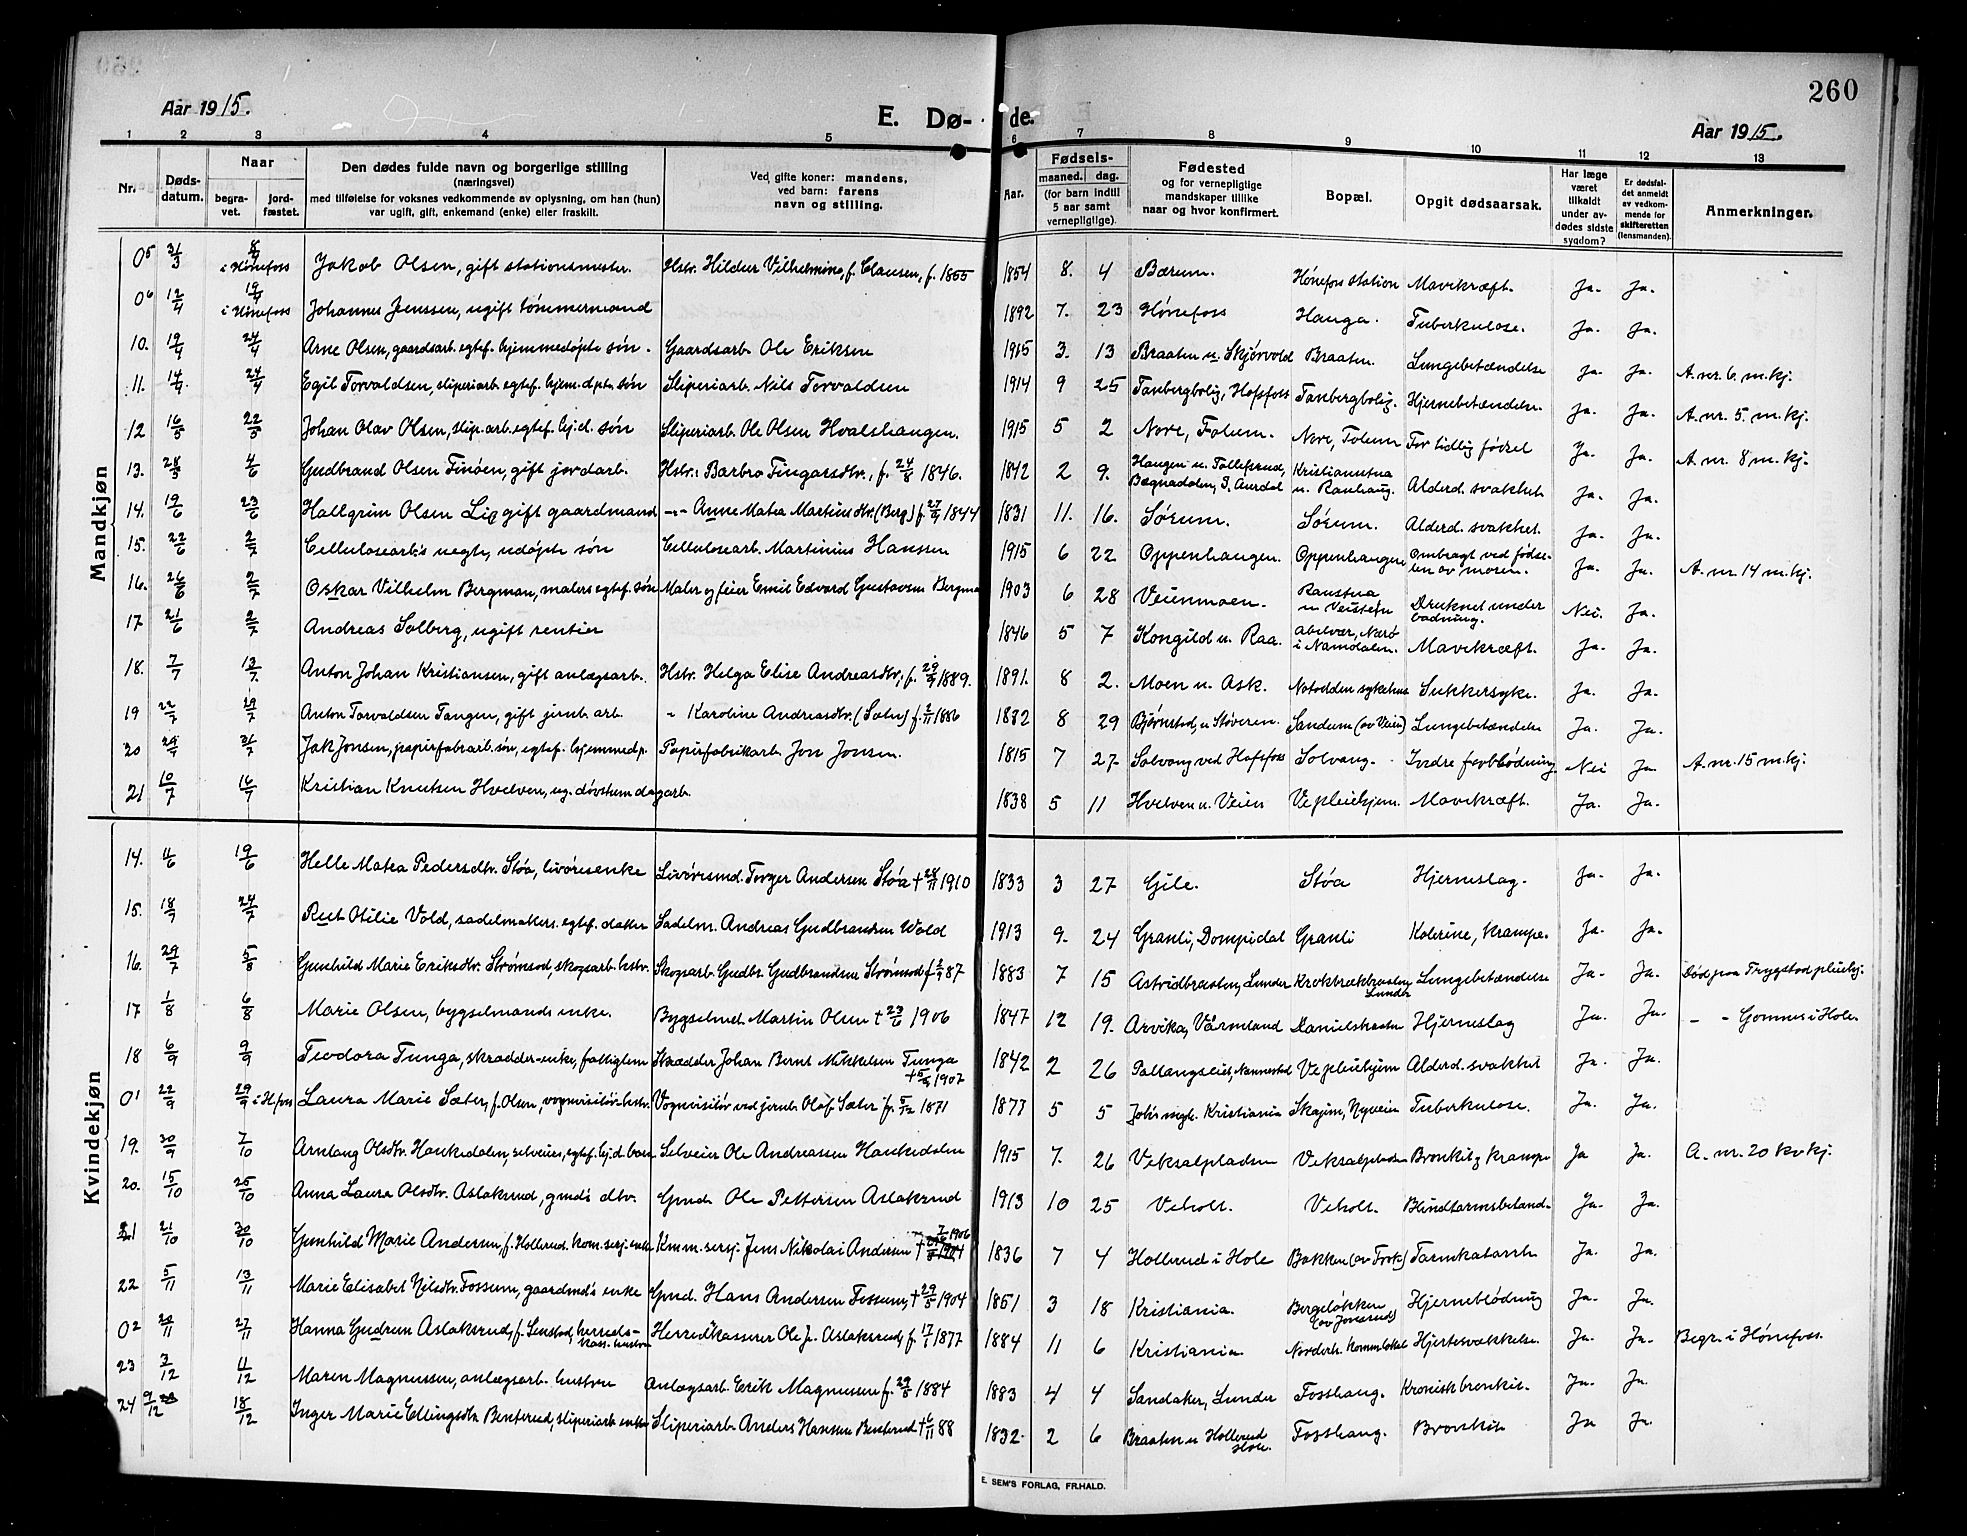 260
Aar 1915.
E. Dø-
de.
Aar 1915.
1 2 3 4 5 6 7 8 9 10 11 12 13
Nr.
Døds-
datum.
Naar
begra-
vet.
jord-
fæstet.
Den dødes fulde navn og borgerlige stilling
(næringsvei)
med tilføielse for voksnes vedkommende av oplysning, om han (hun)
var ugift, gift, enkemand (enke) eller fraskilt.
Ved gifte koner: mandens,
ved barn: farens
navn og stilling.
Aar.
Fødsels-
maaned. dag.
(for barn indtil
5 aar samt
vernepligtige).
Fødested
og for vernepligtige
mandskaper tillike
naar og hvor konfirmert.
Bopæl.
Opgit dødsaarsak.
Har læge
været
tilkaldt
under av-
dødes sidste
sygdom?
Er dødsfal-
det anmeldt
av vedkom-
mende for
skifteretten
(lensmanden).
Anmerkninger.
Mandkjøn
05 31/3 8/4 i Hønefoss Jakob Olsen, gift stationsmester. Hstr. Hildur Vilhelmine, f. Clausen, f. 1855 1854 8. 4 Bærum. Hønefoss station Mavekræft. Ja. Ja.
06 12/4 19/4 i Hønefoss Johannes Jenssen, ugift tømmermand 1892 7. 23 Hønefoss Hauga. Tuberkulose. Ja. Ja.
10. 19/4 24/4 Arne Olsen, gaardsarb. egtef. hjemmedøpte søn. Gaardsarb. Ole Eriksen 1915 3. 13 Braaten u. Skjørvold Braaten. Lungebetændelse Ja. Ja. A. nr. 6. m. kj.
11. 14/4 24/4 Egil Torvaldsen, sliperiarb. egtef. hjem.dpt. søn Sliperiarb. Nils Torvaldsen 1914 9 25 Tanbergbolig, Hofsfoss Tanbergbolig. Hjernebetændelse. Ja. Ja. A. nr. 5. m. kj.
12 16/5 22/5 Johan Olav Olsen, slip. arb. egtef. hj.d. søn Sliperiarb. Ole Olsen Hvalshaugen. 1915 5 2 Nore, Folum. Nore, Folum For tidlig fødsel Ja. Ja. A. nr. 8 m. kj.
13. 28/5 4/6 Gudbrand Olsen Finøen, gift jordarb. Hstr.: Barbro Fingarsdtr., f. 24/8 1846. 1842 2 9. Haugen u. Tollefsrud, Bægnadalen, S. Aurdal Kristianstua u. Rauhaug. Alderd. svakhet Ja. Ja.
14. 19/6 23/6 Hallgrim Olsen Lie gift gaardmand -"- Anne Matea Martinsdtr. (Berg) f. 27/9 1844 1831 11. 16. Sørum. Sørum. Alderd. svakhet. Ja. Ja.
15. 22/6 2/7 Cellulosearb.s uegte, udøpte søn Cellulosearb. Martinius Hanssen 1915 6 22 Oppenhaugen. Oppenhaugen Ombragt ved fødselen av moren. Ja. Ja. A. nr. 14 m. kj.
16. 26/6 2/7 Oskar Vilhelm Bergman, malers egtef. søn Maler og feier Emil Edvard Gustavsen Bergman 1903 6 28 Veienmoen. Ranstua u. Veisetra Druknet under badning. Nei. Ja.
17 21/6 2/7 Andreas Solberg, ugift rentier 1846 5 7 Kongild u. Raa. Abelvær, Nærø i Namdalen. Mavekræft. Ja. Ja.
18. 7/7 13/7. Anton Johan Kristiansen, gift anlægsarb. Hstr. Helga Elise Andreasdtr., f. 29/9 1889. 1891. 8 2. Moen u. Ask. Notodden sykehus Sukkersyke. Ja. Ja.
19 22/7 29/7 Anton Torvaldsen Tangen, gift jernb. arb. " Karoline Andreasdtr. (Sætr) f. 2/11 1886 1882 8 29 Bjørnstad, u. Støveren. Sandum (ov Veien) Lungebetændelse Ja. Ja.
20 29/7 31/7 Jak Jonsen, papirfabrarb. søn, egtef. hjemmedp. Papirfabrikarb. Jon Jonsen. 1815 7 27. Solvang ved Hofsfoss Solvang. Indre forblødning Nei Ja. A. nr. 15 m. kj.
21 10/7 16/7 Kristian Knutsen Hvelven, ug. døvstum dagarb. 1838 5 11 Hvelven u. Veien Vepleiehjem. Mavekræft. Ja. Ja.
Kvindekjøn
14. 11/6 19/6 Helle Matea Pedersdtr. Støa, livøresenke Livøresmd. Torger Andersen Støa + 28/11 1910 1833 3 27 Gile. Støa Hjerneslag. Ja. Ja.
15. 18/7 24/7 Rut Otilie Vold, sadelmakers egtef. datter Sadelm. Andreas Gudbrandsen Wold 1913 9. 24 Granli, Dompidal Granli Kolerine, krampe. Ja. Ja.
16. 29/7 5/8 Gunhild Marie Eriksdtr. Strømsod, skogsarb. hstr. Skogsarb. Gudbr. Gudbrandsen Strømsod f. 2/9 87 1883 7 15 Astridbraaten, Lunder Krokbækbraaten, Lunder Lungebetændelse Ja. Ja. Død paa Trygstad pleiehj.
17 1/8 6/8 Marie Olsen, bygselmands enke. Bygselmd. Martin Olsen + 23/6 1906 1847 12 19. Arvika, Värmland Danielskroken Hjerneslag Ja. Ja. - " - Gomnes i Hole.
18 6/9 9/9 Teodora Tunga, skrædder-enke, fattiglem Skrædder Johan Bernt Mikkelsen Tunga + 5/5 1907 1842 2 26 Pallangseiet, Nannestad Vepleiehjem Alderd. svakhet Ja. Ja.
01 22/9 29/9 i Hfoss Laura Marie Sæter, f. Olsen, vognvisitør-hstr. Vognvisitør ved jernb. Olaf Sæter f. 5/12 1871 1877 5 5 Joh.s mgh. Kristiania Skajem, Nyveien Tuberkulose. Ja. Ja.
19. 30/9 7/10 Arnlaug Olsdtr. Haukedalen, selveiers, egtef. hj.d. barn Selveier Ole Andreassen Haukedalen 1915 7. 26 Veksalpladsen Veksalpladsen Bronkit, krampe Ja Ja. A. nr. 20 kv.kj.
20. 15/10 25/10 Anna Laura Olsdtr. Aslaksrud, gmd's dtr. Gmd. Ole Pettersen Aslaksrud 1913 10 25 Veholt. Veholt. Blindtarmsbetænd. Ja. Ja.
21 21/10 30/10 Gunhild Marie Andersen, f. Hollerud. kom.serj. enke Kmm. serj. Jens Nikolai Andersen + 7/6 1906 1836 7 4 Hollerud i Hole Bakken (ov Fosk) Tarmkatarrh Ja. Ja.
22 5/11 13/11 Marie Elisabet Nilsdtr. Fossum, gaardmd's enke Gmd. Hans Andersen Fossum, + 29/5 1904 1851 3 18 Kristiania. Bergeløkken (ov Jonsrud) Hjerneblødning Ja. Ja.
02 20/11 27/11 Hanna Gudrun Aslaksrud, f. Semstad, herreds-kass. hustru Herredskasserer Ole J. Aslaksrud, f. 17/1 1877 1884 11 6 Kristiania Norderh. kommunelokal Hjertesvækkelse Ja. Ja. Begr. i Hønefoss.
23 3/12 11/12 Maren Magnussen, anlægsarb. hustru Anlægsarb. Erik Magnussen f. 29/8 1884 1883 4 4 Sandaker, Lunder Fosshaug. Kronisk bronkit. Ja. Ja.
24 9/12 18/12 Inger Marie Ellingsdtr. Benterud, sliperiarb. enke Sliperiarb. Anders Hanssen Benterud + 6/11 88 1832 2 6 Braaten u Hollerud Hole. Fosshaug. Bronkit Ja Ja.
E. SEM'S FORLAG, FR.HALD.